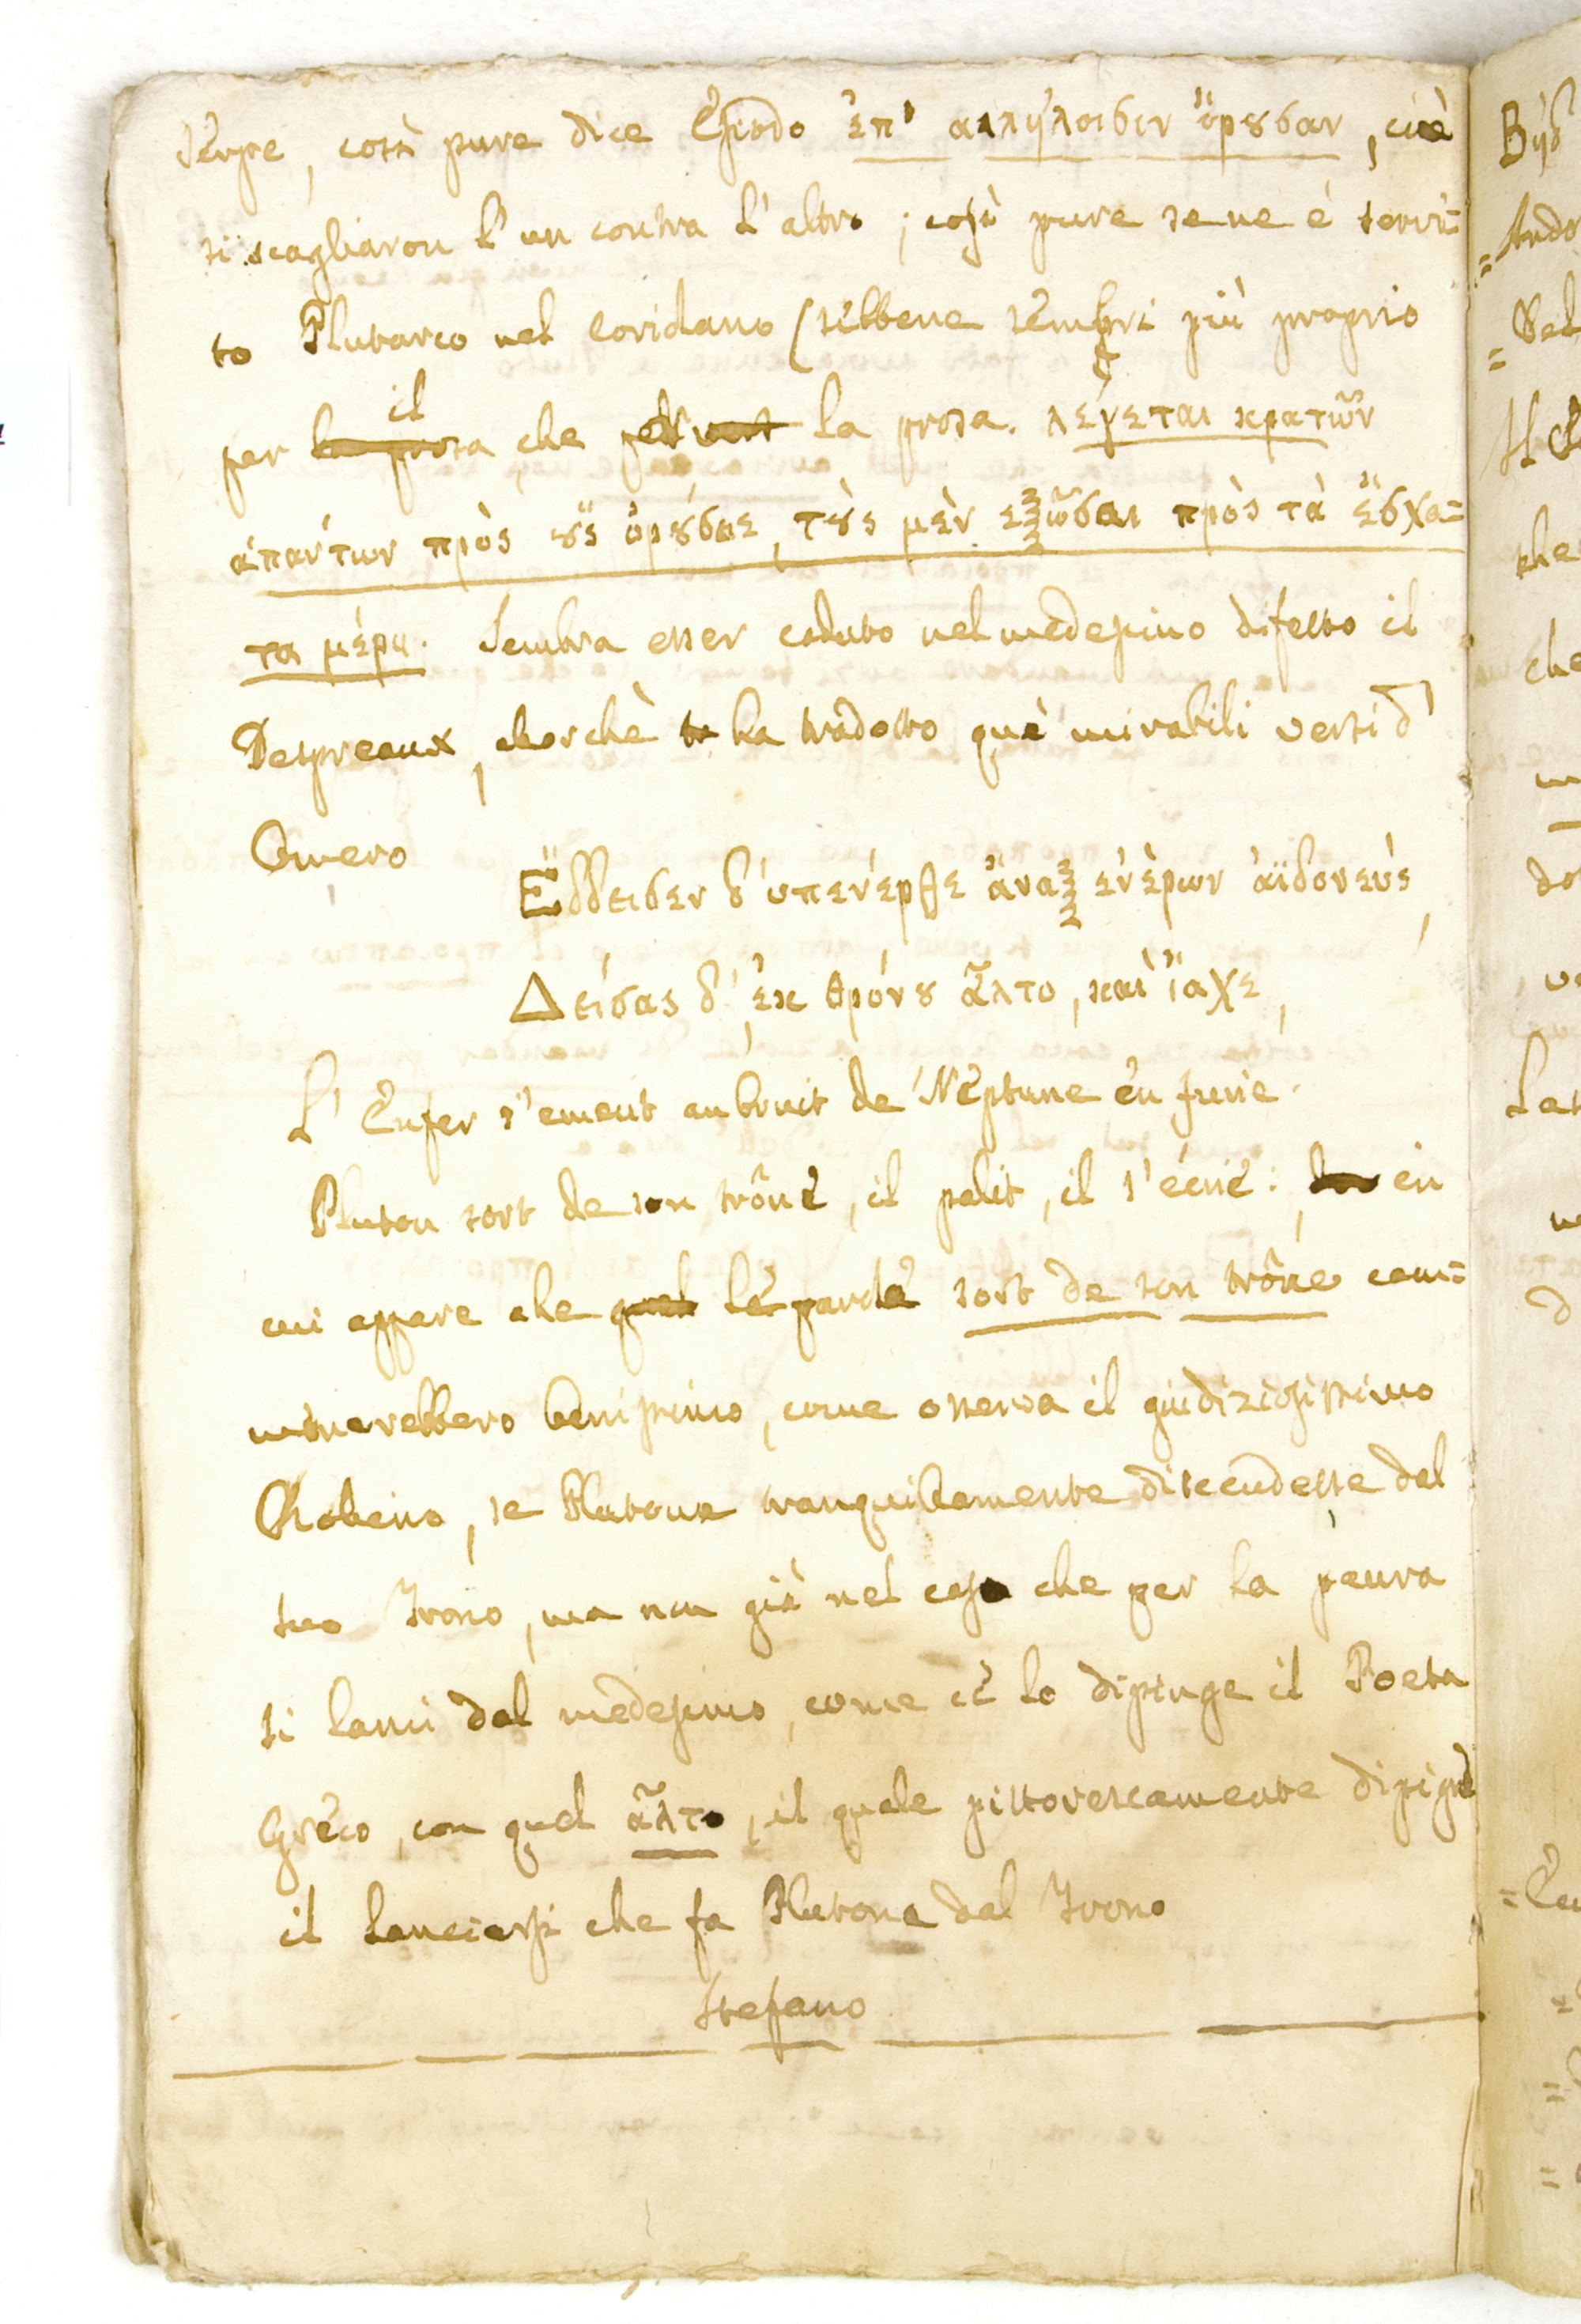 serpe, così pure dice Esiodo ἐπ' αλλήλοισιν ὄρουσαν, cioè
si scagliaron l'un contra l'altro; così pure se ne è servi=
to Plutarco nel Coriolano (sebbene sembri più proprio
per il che la prosa. λέγεται κρατῶν
ἁπάντων πρὸς οὓς ὀρούσαι, τοὺς μὲν ἐξῶσαι πρὸς τὰ ἔσχα=
τα μέρη. Sembra esser caduto nel medesimo difetto il
Despreaux, allorchè ha tradotto que' mirabili versi d'
Omero
Ἔδδεισεν δ' ὑπένερθε ἄναξ ἐνέρων ἀϊδονεύς,
Δείσας δ' ἐκ θρόνου ἆλτο, καὶ ἴαχε,
L'Enfer s'emeut au bruit de Neptune en furie.
Pluton sort de son trône, il palit, il s'écrie: in
cui appare che le parole sort de son trône cam=
minerebbero benissimo, come osserva il giudiziosissimo
Robeiro, se Plutone tranquillamente discendesse dal
suo Trono, ma non già nel caso che per la paura
si lanci dal medesimo, come ce lo dipinge il Poeta
Greco, con quel ἆλτο, il quale pittorescamente dipigne
il lanciarsi che fa Plutone dal Trono
Stefano